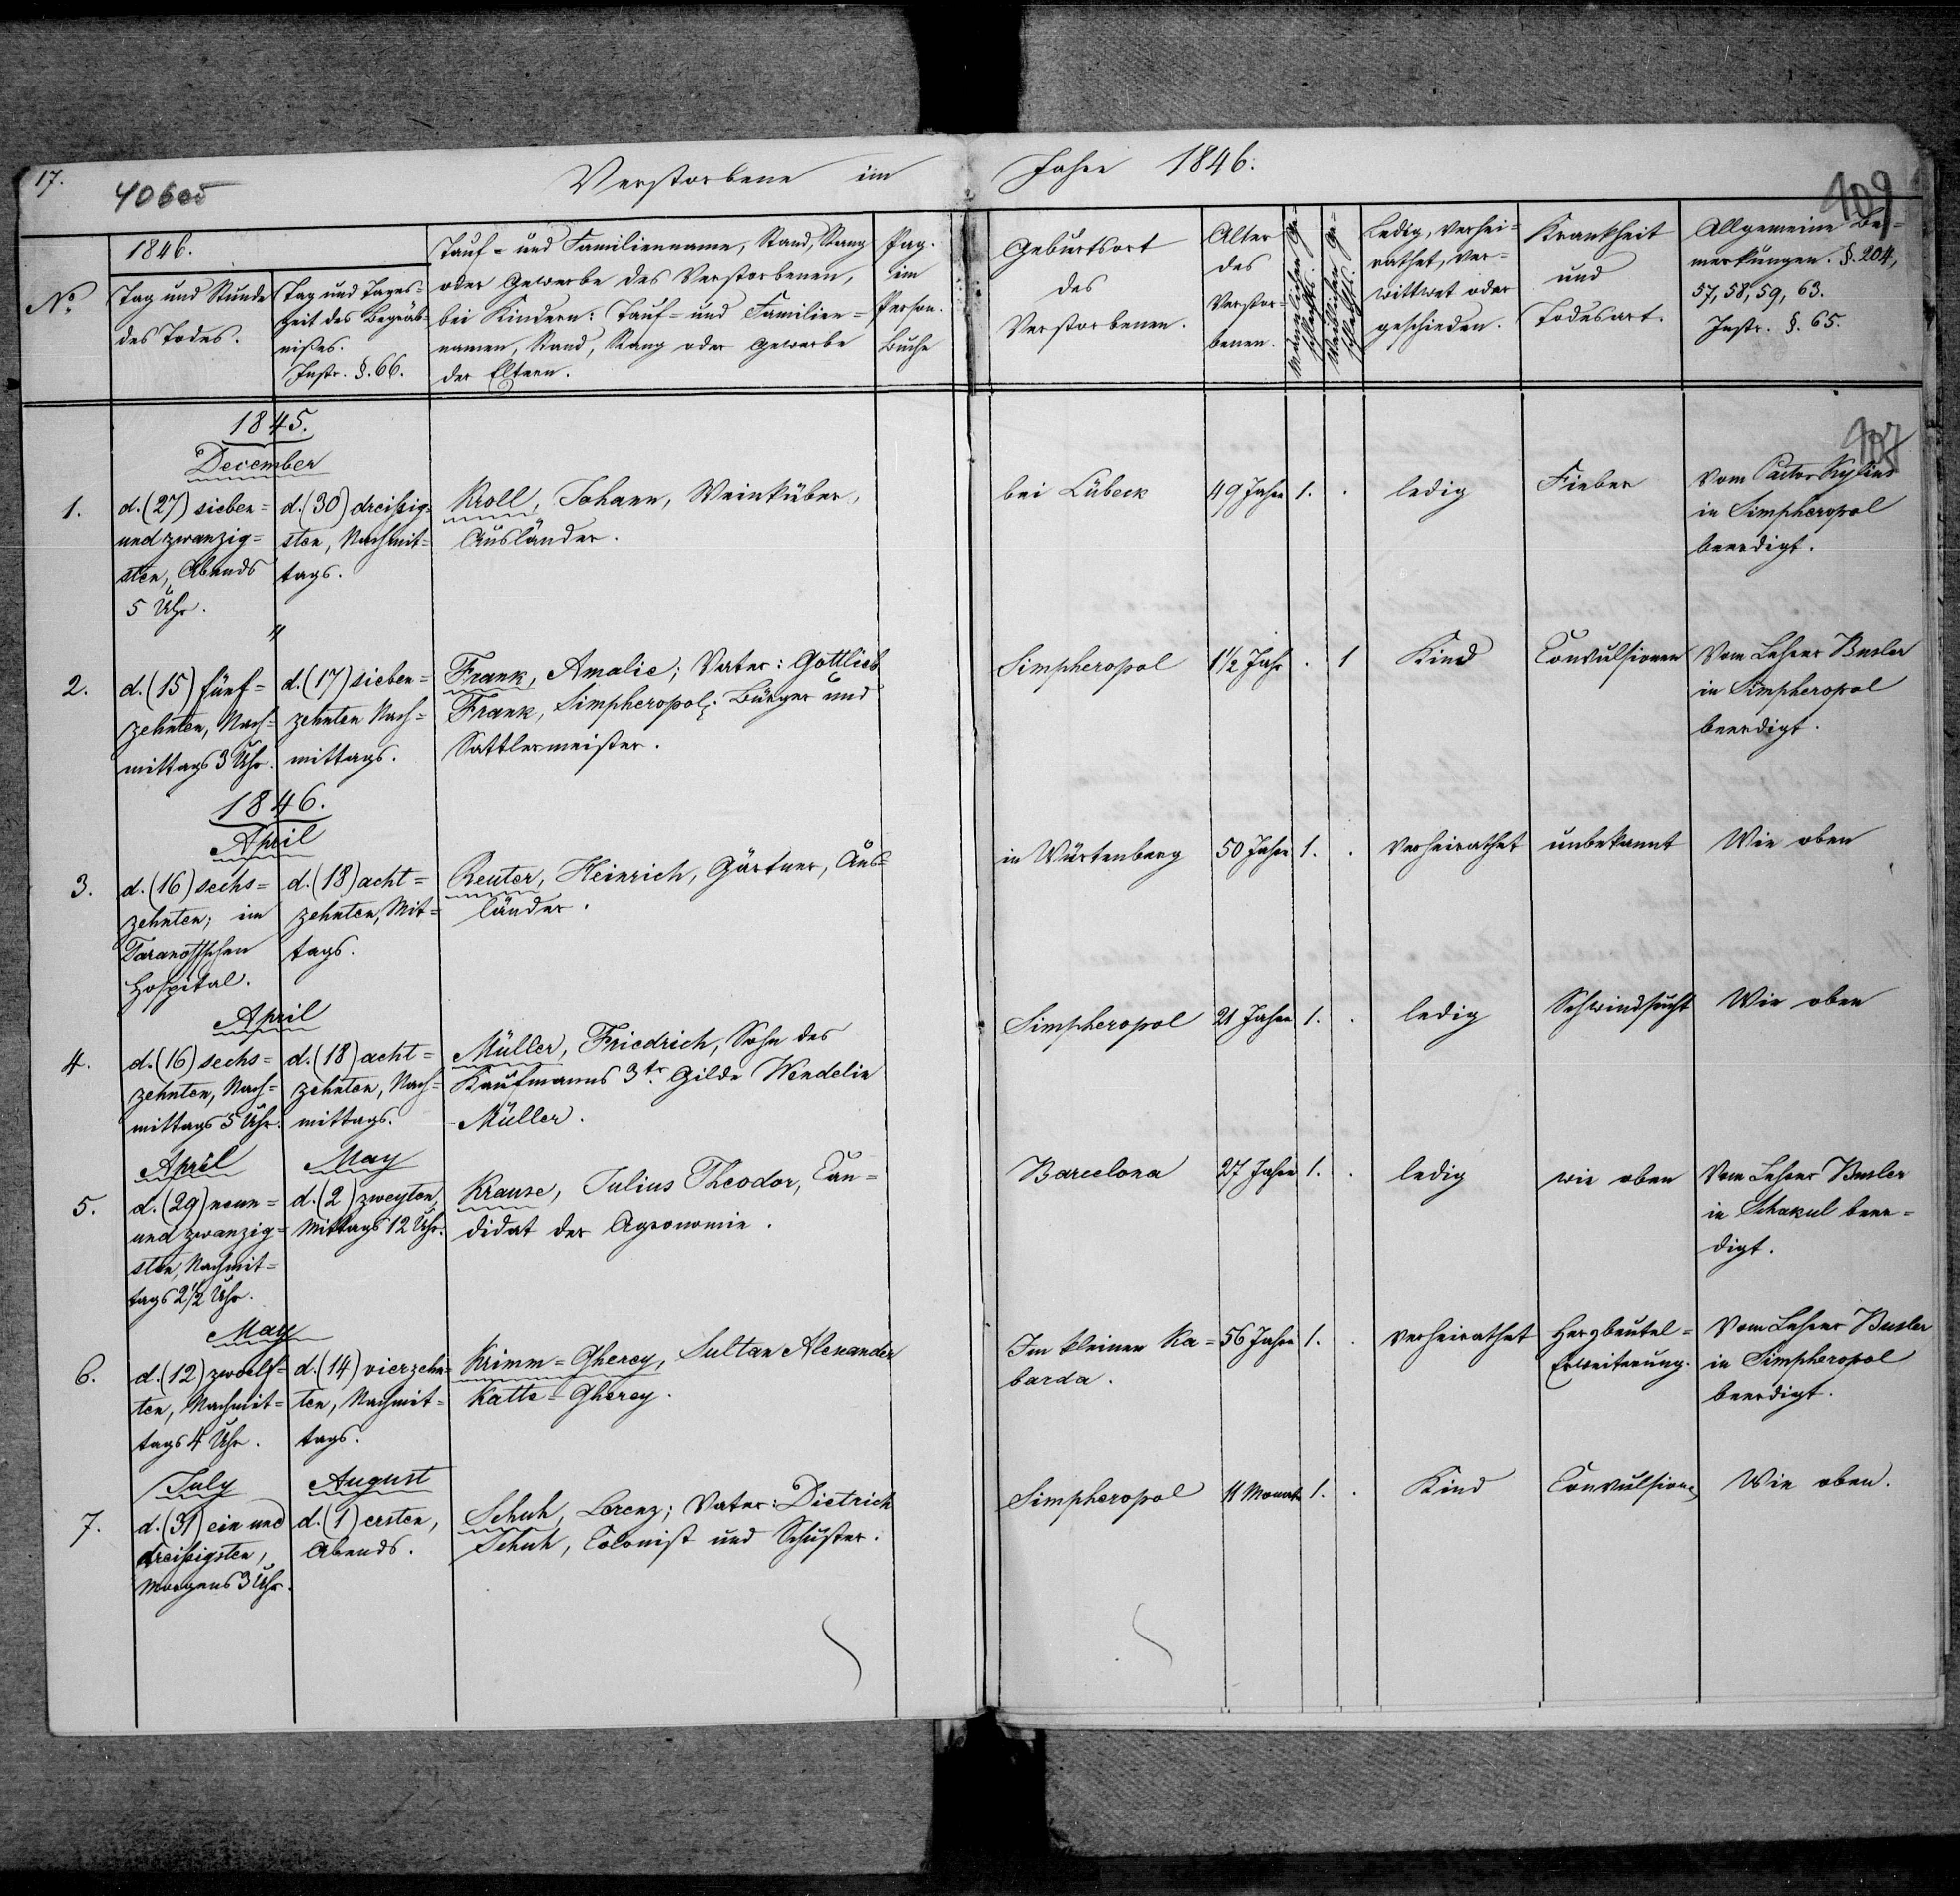 17.
406об
Verstorbene im Jahre 1846.
409
No.
1846.
Tag und Stunde
des Todes.
Tag und Tages-
zeit des Begräb-
nißes.
Instr. §. 66.
Tauf- und Familienname, Stand, Rang
oder Gewerbe des Verstorbenen,
bei Kindern: Tauf- und Familien-
namen, Stand, Rang oder Gewerbe
der Eltern.
Pag.
im
Person.
Buche
Geburtsort
des
Verstorbenen.
Alter
des
Verstor-
benen.
Männlichen Ge-
schlechts.
Weiblichen Ge-
schlechts.
Ledig, verhei-
rathet, ver-
wittwet oder
geschieden.
Krankheit
und
Todesart.
Allgemeine Be-
merkungen. §. 204,
57, 58, 59, 63.
Instr. §. 65.
1845.
December
1.
d. (27) sieben-
und zwanzig-
sten, Abends
5 Uhr.
d. (30) dreißig-
sten, Nachmit-
tags.
Kroll, Johann, Weinküber,
Ausländer.
bei Lübeck
49 Jahre
1.
.
ledig
Fieber
Vom Pastor Kylius
in Simpheropol
beerdigt.
"
2.
d. (15) fünf-
zehnten, Nach-
mittags 3 Uhr.
d. (17) sieben-
zehnten Nach-
mittags.
Frank, Amalie; Vater: Gottlieb
Frank, Simpheropol. Bürger und
Sattlermeister.
Simpheropol
1½ Jahr
.
1
Kind
Convulsionen
Vom Lehrer Busler
in Simpheropol
beerdigt.
1846.
April
3.
d. (16) sechs-
zehnten; im
Taranoffschen
Hospital.
d. (18) acht-
zehnten, Mit-
tags.
Reuter, Heinrich, Gärtner, Aus-
länder.
in Würtenberg
50 Jahre
1.
.
verheirathet
unbekannt
Wie oben
April
4.
d. (16) sechs-
zehnten, Nach-
mittags 5 Uhr.
d. (18) acht-
zehnten, Nach-
mittags.
Müller, Friedrich, Sohn des
Kaufmanns 3tr. Gilde Wendelin
Müller.
Simpheropol
21 Jahre
1.
.
ledig
Schwindsucht
Wie oben
April
May
5.
d. (29) neun-
und zwanzig-
sten, Nachmit-
tags 2½ Uhr.
d. (2) zweyten,
Mittags 12 Uhr.
Krause, Julius Theodor, Can-
didat der Agronomie.
Barcelona
27 Jahre
1.
.
ledig
wie oben
Vom Lehrer Busler
in Schakul beer-
digt.
May
6.
d. (12) zwoelf-
ten, Nachmit-
tags 4 Uhr.
d. (14) vierzehn-
ten, Nachmit-
tags.
Krimm-Gherey, Sultan Alexander
Katte-Gherey.
Im kleinen Ka-
barda.
56 Jahre
1.
.
verheirathet
Herzbeutel-
Erweiterung.
Vom Lehrer Busler
in Simpheropol
beerdigt.
July
August
7.
d. (31) ein und
dreißigsten,
Morgens 3 Uhr.
d. (1) ersten,
Abends.
Schuh, Lorenz; Vater: Dietrich
Schuh, Colonist und Schuster.
Simpheropol
11 Monate
1.
.
Kind
Convulsionen
Wie oben.